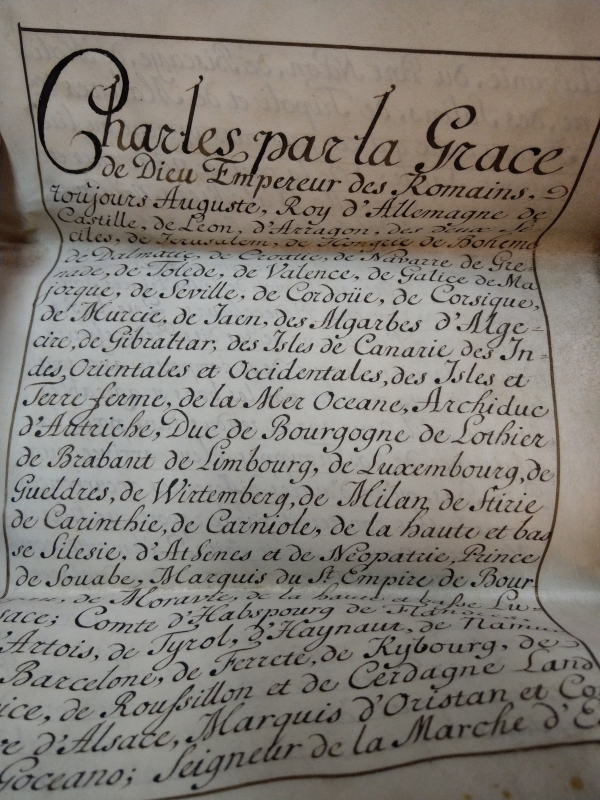 Charles par la Grace
de Dieu Empereur des Romains,
toûjours Auguste, Roy d'Allemagne de
Castille, de Leon, d'Arragon, des deux Si
ciles, de Jerusalem, de Hongrie de Boheme
de Dalmatie, de Croatie, de Navarre de Gre
nade, de Tolede, de Valence, de Galice de Ma
jorque, de Seville, de Cordoüe, de Corsique,
de Murcie, de Jaen, des Algarbes d'Alge-
cire, de Gibraltar, des Isles de Canarie des In-
des, Orientales et Occidentales, des Isles et
Terre ferme, de la Mer Oceane, Archiduc
d'Autriche, Duc de Bourgogne de Lothier
de Brabant de Limbourg, de Luxembourg, de
Gueldres, de Wirtemberg, de Milan de Stirie
de Carinthie, de Carniole, de la haute et bas
se Silesie, d'Athenes et de Neopatrie, Prince
de Souabe, Marquis du St. Empire de Bour
de Moravie, de la haute et basse Lu-
sace; Comte d'Habspourg de Flandres
d'Artois, de Tyrol, d'Haynaut, de Namur
Barcelone, de Ferrete, de Kybourg, de
ice, de Roussillon et de Cerdagne Land
re d'Alsace, Marquis d'Oristan et Co
Goceano; Seigneur de la Marche d'E